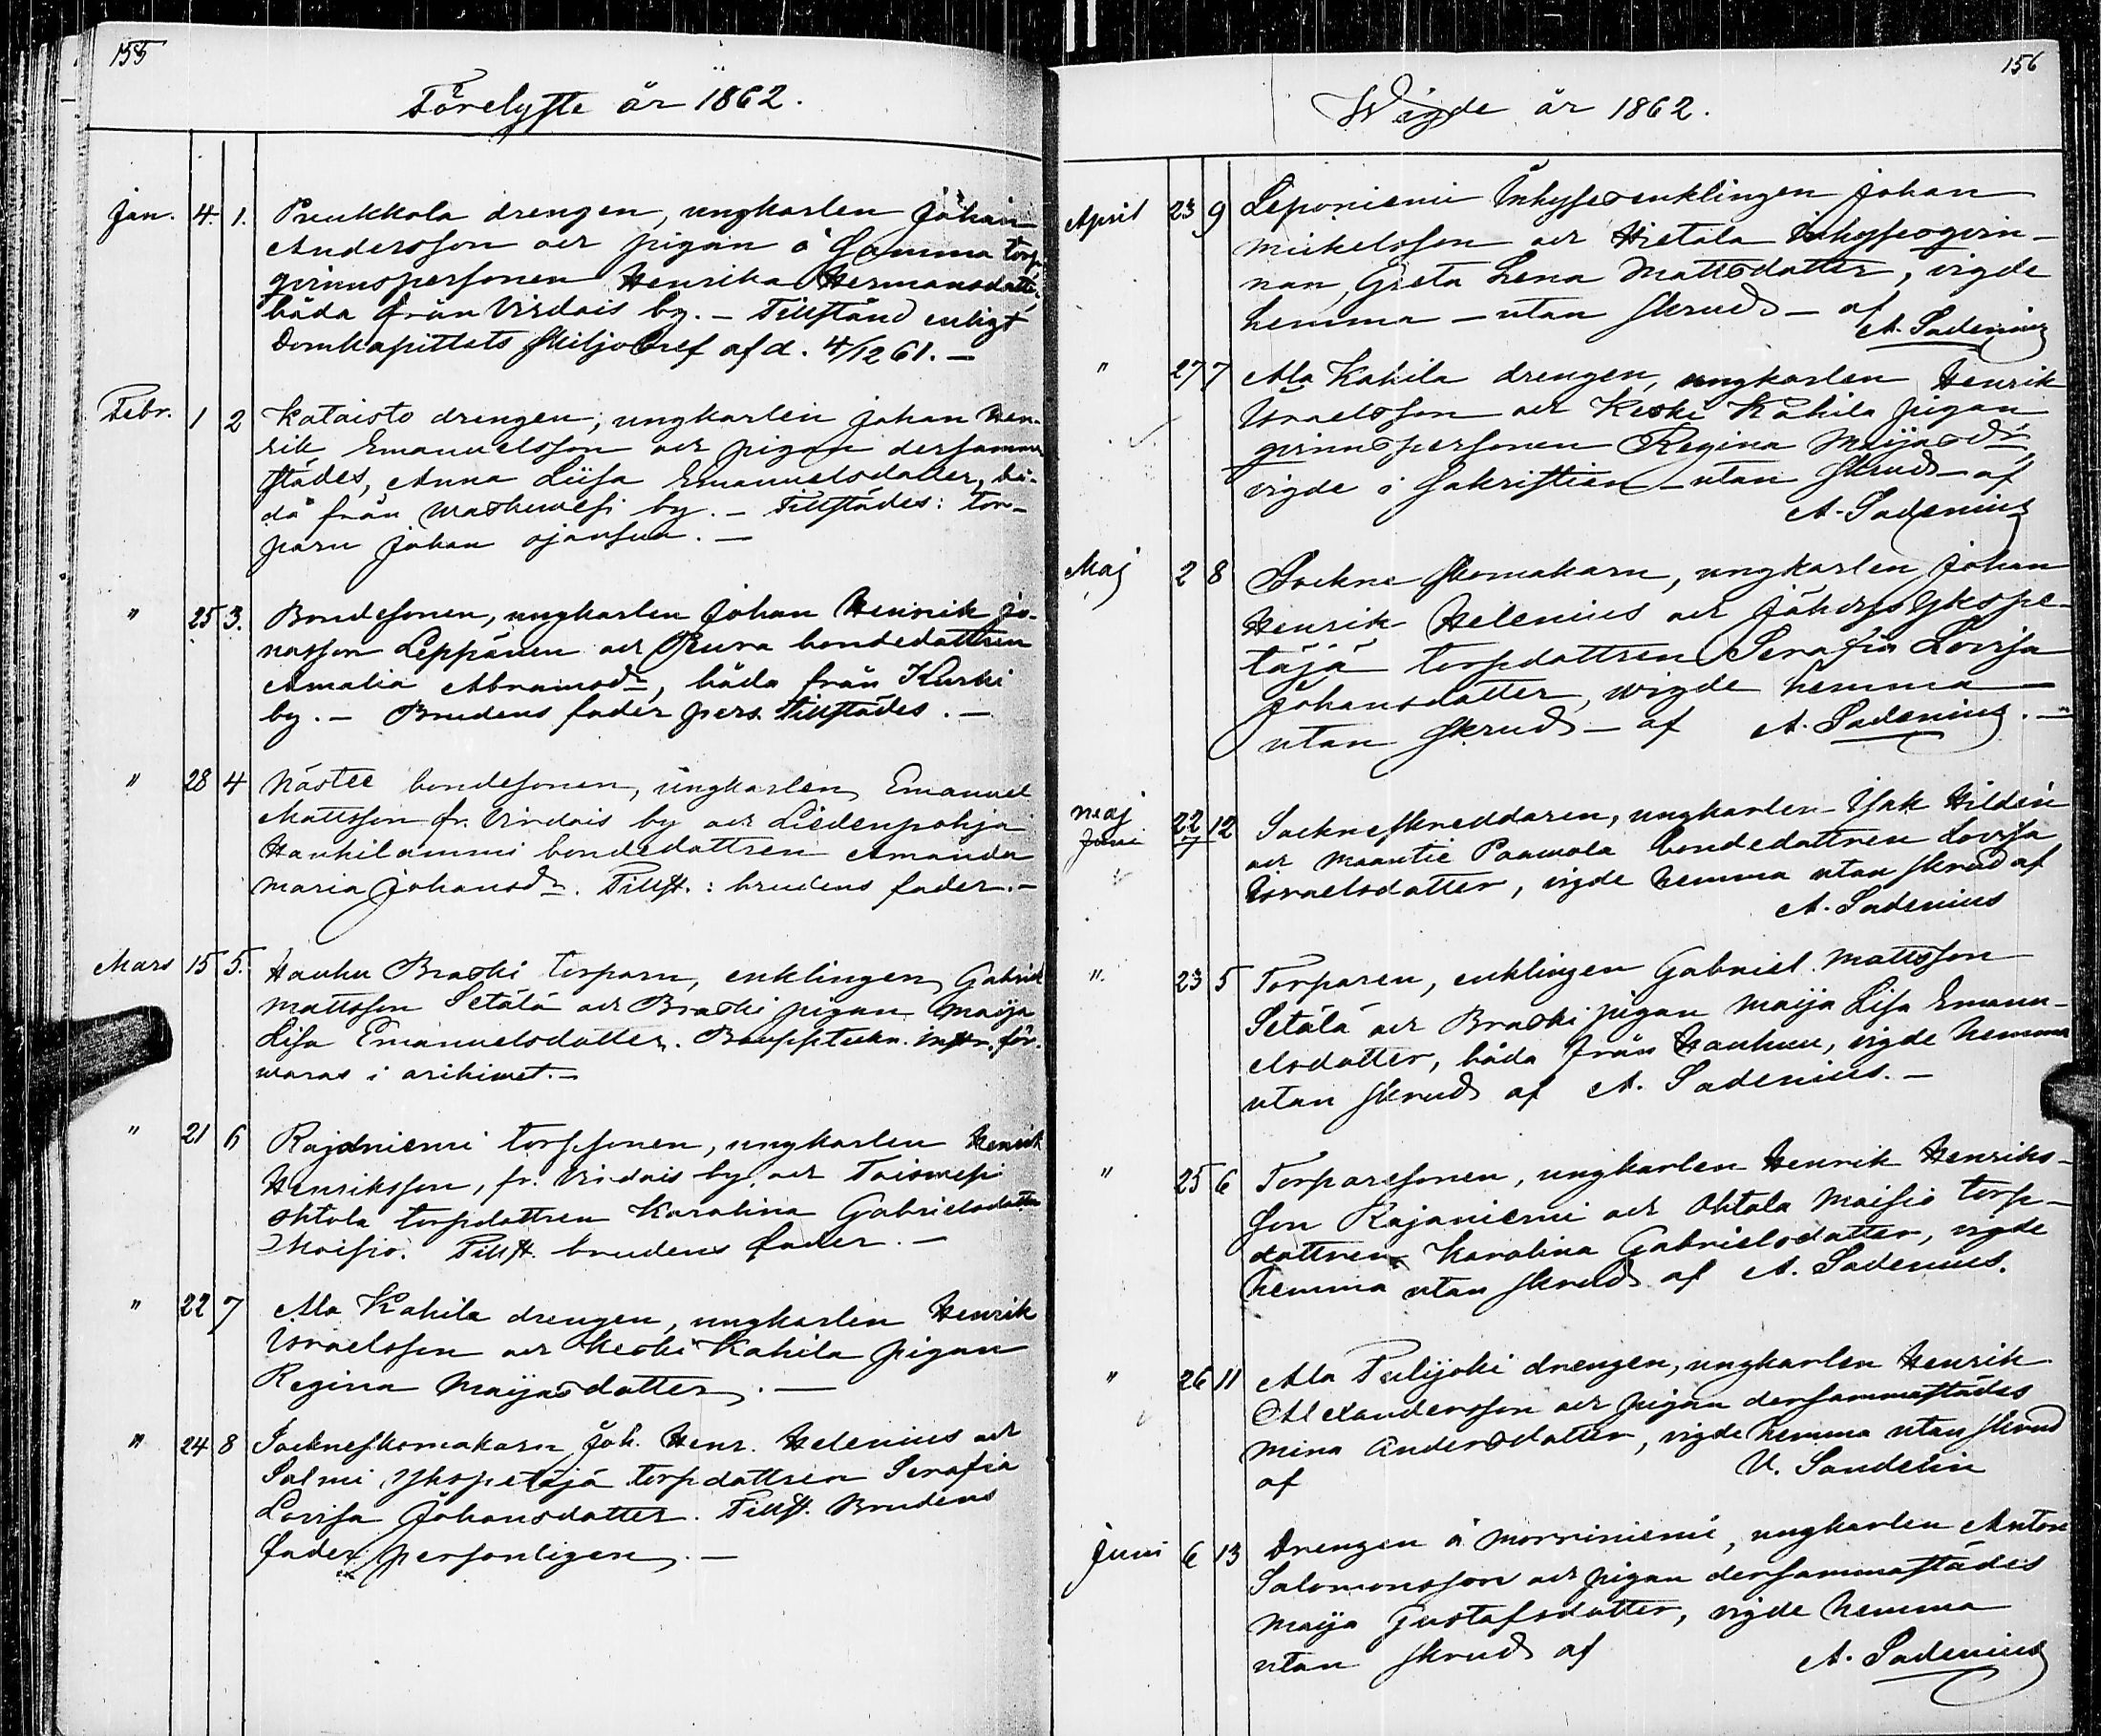 155
Förelyste år 1862.
Jan. 4. 1. Puukkola drengen, ungkarlen Johan
Andersson och pigan å Samma torp,
qvinnspersonen Henrika Hermansdotter,
båda från Virdois by. – Tillstånd enligt
Domkapitlets skiljobref af d. 4/12 61. –
Febr. 1 2 Kataisto drengen, ungkarlen Johan Hen-
rik Emanuelsson och pigan dersamma
städes, Anna Liisa Emanuelsdotter, bå-
då från Waskuwesi by. – Tillstädes: tor-
parn Johan Ojansuu. –
" 25 3. Bondesonen, ungkarlen Johan Henrik Jo-
nasson Leppänen och bondedottren
Amalia Abramsdr, båda från Kurki
by. – Brudens fader pers. tillstädes. –
" 28 4 bondesonen, ungkarlen Emanuel
Mattsson fr. Virdois by och Liedenpohja
Hauhilammi bondedottren Amanda
Maria Johansdr. Tillst.: brudens fader. –
Mars 15 5. Hauhu Braski torparn, enklingen Gabriel
Mattsson Setälä och Braski pigan Maija
Lisa Emanuelsdotter. för-
waras i arkivet. –
" 21 6 Rajaniemi torpsonen, ungkarlen Henrik
Henriksson, fr. Virdois by, och Toiswesi
Ohtola torpdottren Karolina Gabrielsdotter
Moisio. Tillst. brudens fader. –
" 22 7 Ala Kahila drengen, ungkarlen Henrik
Israelsson och Keski Kahila pigan
Regina Maijasdotter. –
" 24 8 Sockneskomakarn Joh. Henr. Helenius och
Salmi Ykspetäjä torpdottren Serafia
Lovisa Johansdotter. Tillst. Brudens
fader personligen. –
156
Wigde år 1862.
April 23 9 Leponiemi Inhyses enklingen Johan
Mickelsson och Hietala inhysesqvin-
nan, Greta Lena Mattsdotter, vigde
hemma – utan skrud – af
A. Sadenius
" 27 7 Ala Kahila drengen, ungkarlen Henrik
Israelsson och Keski Kahila pigan
qvinnspersonen Regina Maijasdr
vigde i Sakristian – utan skrud – af
A. Sadenius
Maj 2 8 Sockne skomakarn, ungkarlen Johan
Henrik Helenius och Ykspe-
täjä torpdottren Serafia Lovisa
Johansdotter, wigde hemma –
utan skrud – af A. Sadenius. –
Maj
Juni 22 12 Sockneskreddaren, ungkarlen Isak Hildén
och Maantie Paawola bondedottren Lovisa
Israelsdotter, vigde hemma utan skrud af
A. Sadenius
" 23 5 Torparen, enklingen Gabriel Mattsson
Setälä och Braski pigan Maija Lisa Emanu-
elsdotter, båda från Hauhuu, vigde hemma
utan skrud af A. Sadenius. –
" 25 6 Torparesonen, ungkarlen Henrik Henriks-
son Rajaniemi och Ohtola Moisio torp-
dottren Karolina Gabrielsdotter, vigde
hemma utan skrud af A. Sadenius.
" 26 11 Ala Pulijoki drengen, ungkarlen Henrik
Alexandersson och pigan dersammastädes
Mina Andersdotter, vigde hemma utan skrud
af V. Sandelin
Juni 6 13 Drengen å Morriniemi, ungkarlen Anton
Salomonsson och pigan dersammastädes
Maija Gustafsdotter, vigde hemma
utan skrud af A. Sadenius